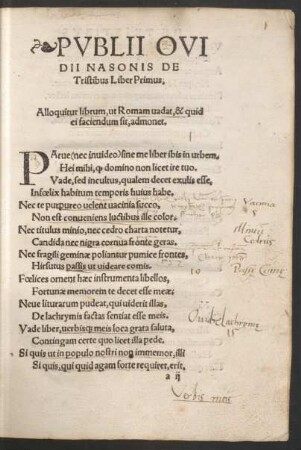 PVBLII OVI
DII NASONIS DE
Tristibus Liber Primus.
Alloquitur librum, ut Romam uadat, & quid
ei faciendum sit, admonet.
PArue (nec inuideo) sine me liber ibis in urbem,
Hei mihi, ꝙ domino non licet ire tuo.
Vade, sed incultus, qualem decet exulis esse,
Infœlix habitum temporis huius habe.
Nec te purpureo uelent uacinia succo,
Non est conueniens luctibus ille color.
Nec titulus minio, nec cedro charta notetur,
Candida nec nigra cornua fronte geras.
Nec fragili geminæ poliantur pumice frontes,
Hirsutus passis ut uideare comis.
Fœlices ornent hæc instrumenta libellos,
Fortunæ memorem te decet esse meæ.
Neue liturarum pudeat, qui uiderit illas,
De lachrymis factas sentiat esse meis.
Vade liber, uerbisq; meis loca grata saluta,
Contingam certe quo licet illa pede.
Si quis ut in populo nostri non immemor, illi
Si quis, qui quid agam forte requiret, erit,
a ij
5
10
15
Verbis meis